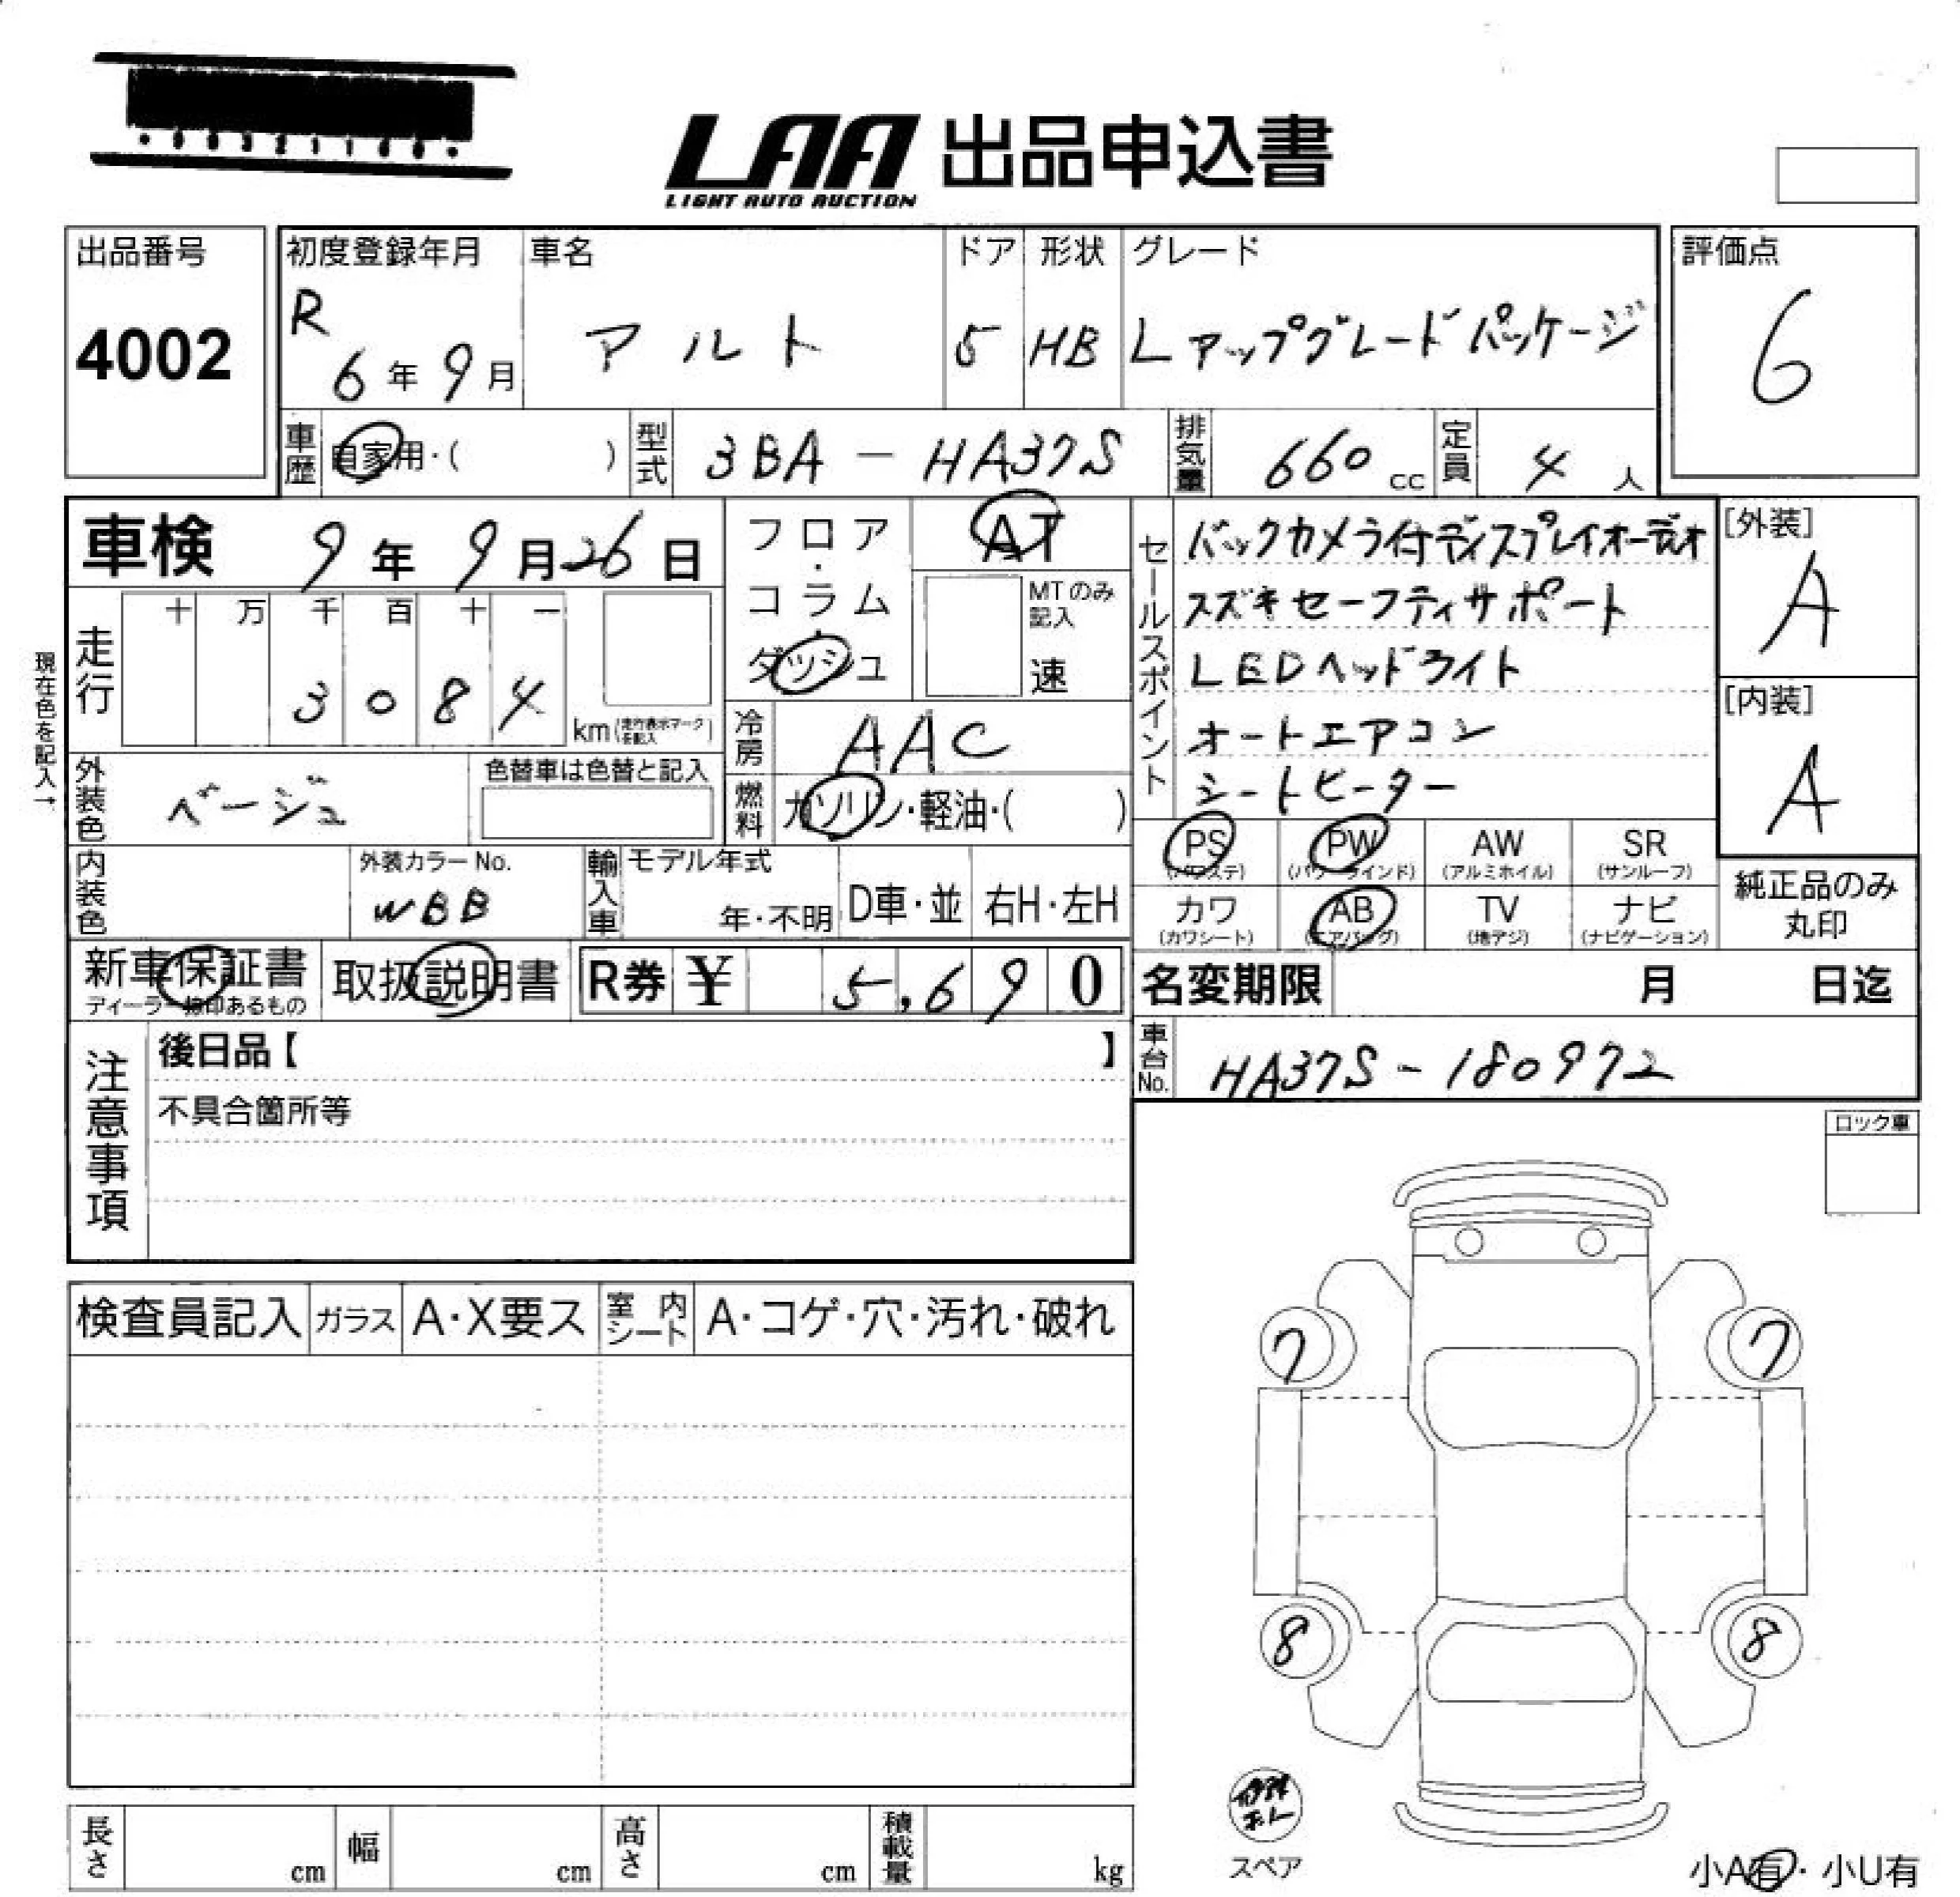 LAA 出品申込書
LIGHT AUTO AUCTION
出品番号
4002
初度登録年月
R
6年9月
車名
アルト
ドア
5
形状
HB
グレード
Lアップグレードパッケージ
評価点
6
車歴
自家用・( )
型式
3BA-HA37S
排気量
660cc
定員
4人
車検 9年9月26日
現在色を記入→
走行
十 万 千 百 十 一
3 0 8 4
km(走行表示マークを記入)
フロア・
コラム・
ダッシュ
AT
MTのみ
記入
速
冷房
AAC
燃料
ガソリン・軽油・( )
セールスポイント
バックカメラ付ディスプレイオーディオ
スズキセーフティサポート
LEDヘッドライト
オートエアコン
シートヒーター
[外装]
A
[内装]
A
外装色
ベージュ
色替車は色替と記入
内装色
外装カラーNo.
WBB
輸入車
モデル年式
年・不明
D車・並
右H・左H
PS
(パワステ)
PW
(パワーウインド)
AW
(アルミホイル)
SR
(サンルーフ)
カワ
(カワシート)
AB
(エアバッグ)
TV
(地デジ)
ナビ
(ナビゲーション)
純正品のみ
丸印
新車保証書
ディーラー捺印あるもの
取扱説明書
R券 ¥ 5,690
名変期限 月 日迄
車台No.
HA37S-180972
注意事項
後日品【 】
不具合箇所等
ロック車
検査員記入
ガラス
A・X要ス
室内シート
A・コゲ・穴・汚れ・破れ
7
7
8
8
スペア
長さ cm
幅 cm
高さ cm
積載量 kg
小A有・小U有